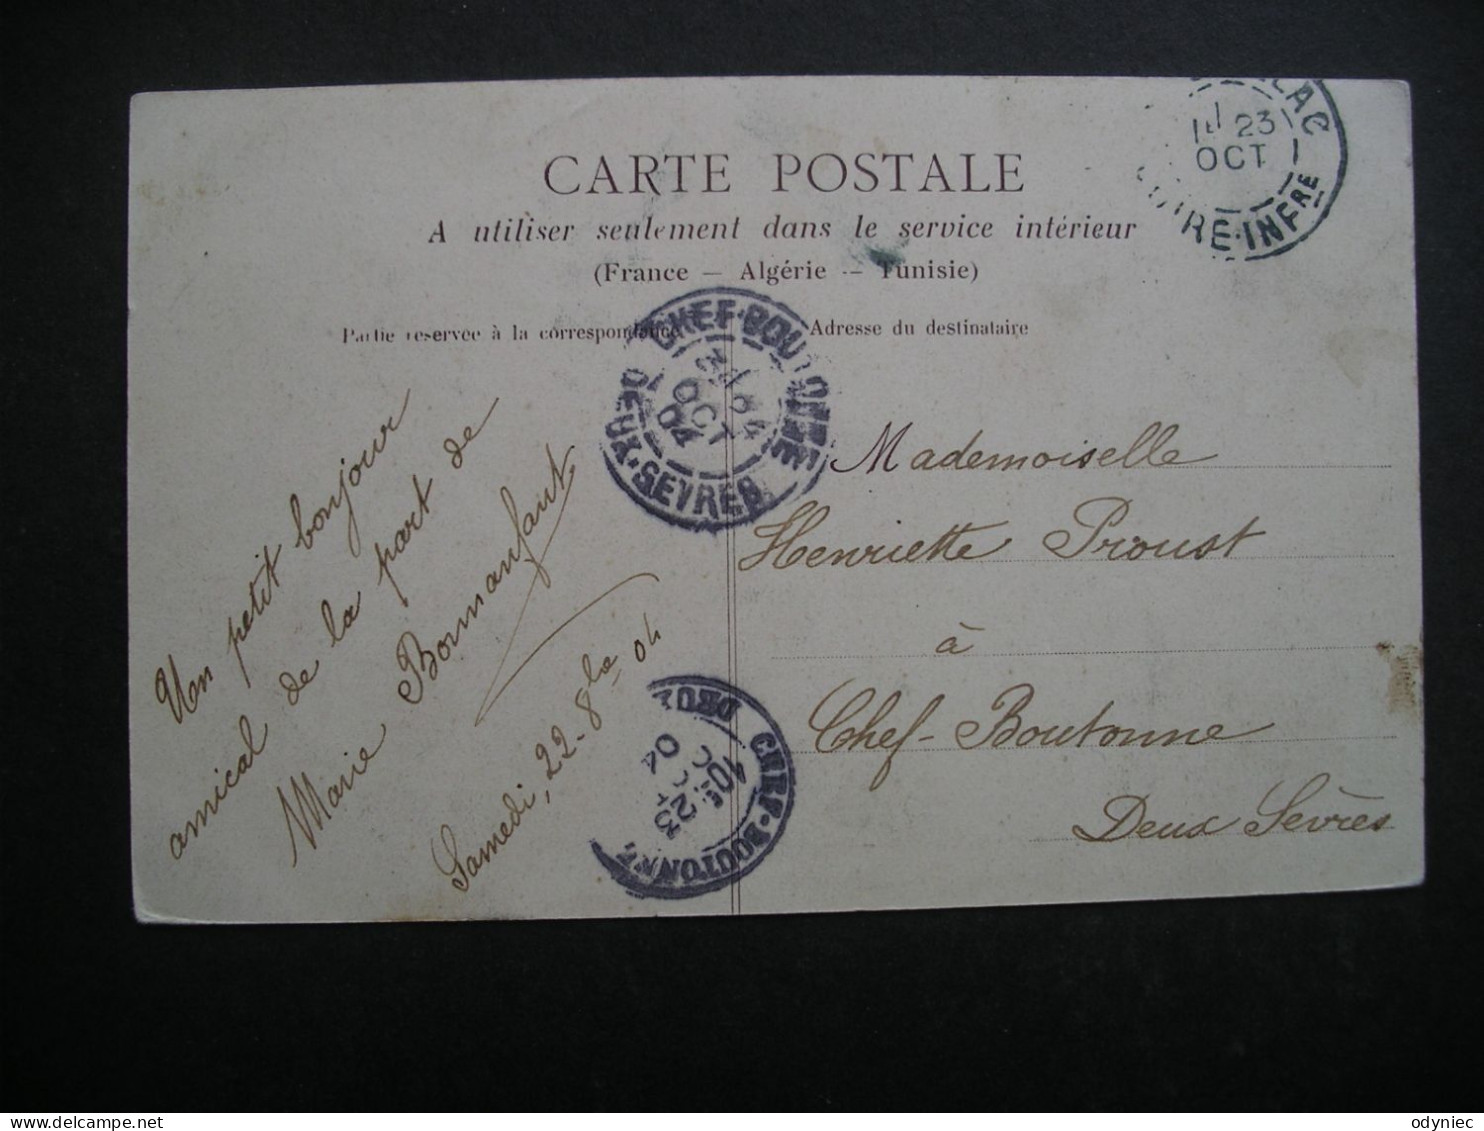 CARTE POSTALE
A utiliser seulement dans le service intérieur
(France — Algérie — Tunisie)
Partie réservée à la correspondance
Adresse du destinataire
23
OCT
LOIRE-INFRE
CHEF-BOUTONNE
OCT
04
DEUX-SEVRES
Un petit bonjour
amical de la part de
Marie Bonnanfant
Samedi, 22-8bre 04
Mademoiselle
Henriette Proust
à
Chef-Boutonne
Deux Sèvres
CHEF-BOUTONNE
10
23
04
odyniec
delcampe.net